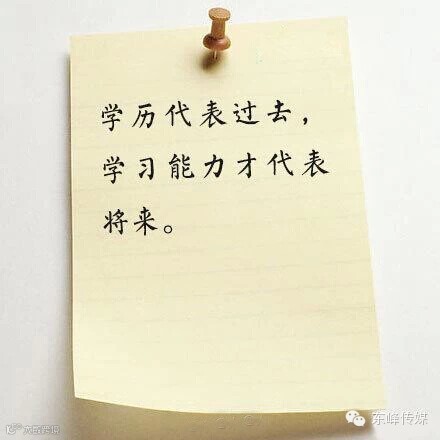 学历代表过去，
学习能力才代表
将来。
东峰传媒